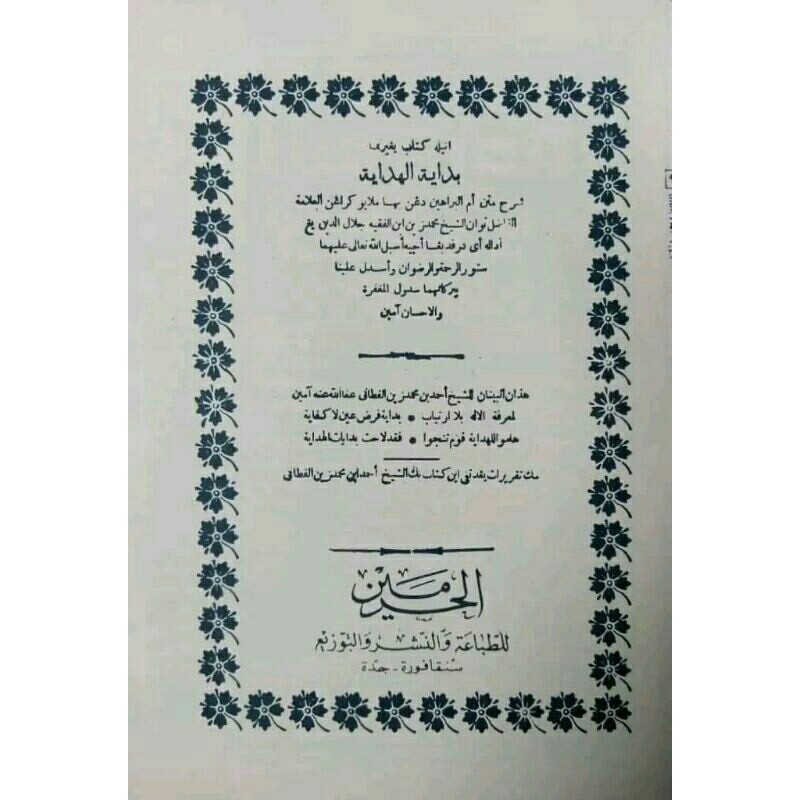 اينله كتاب يڠبرنام
بداية الهداية
شرح متن أم البراهين دڠن بهاس ملايو كراڠن العلامة
الفاضل توان الشيخ محمد زين ابن الفقيه جلال الدين يڠ
اداله اي در فد بڤسا أچيه أسبل الله تعالى عليهما
ستور الرحمة والرضوان وأسدل علينا
ببركاتهما سدول المغفرة
والاحسان آمين
هذان البيتان للشيخ أحمد بن محمد زين الفطاني عفا الله عنه آمين
لمعرفة الاله بلا ارتياب • بداية فرض عين لا كفاية
هلموا للهداية قوم تنجوا • فقد لاحت بدايات الهداية
مك تقريرات يڠد تڤي اين كتاب بڬ الشيخ أحمد ابن محمد زين الفطاني
الحرمين
للطباعة والنشر والتوزيع
سنقافورة - جدة